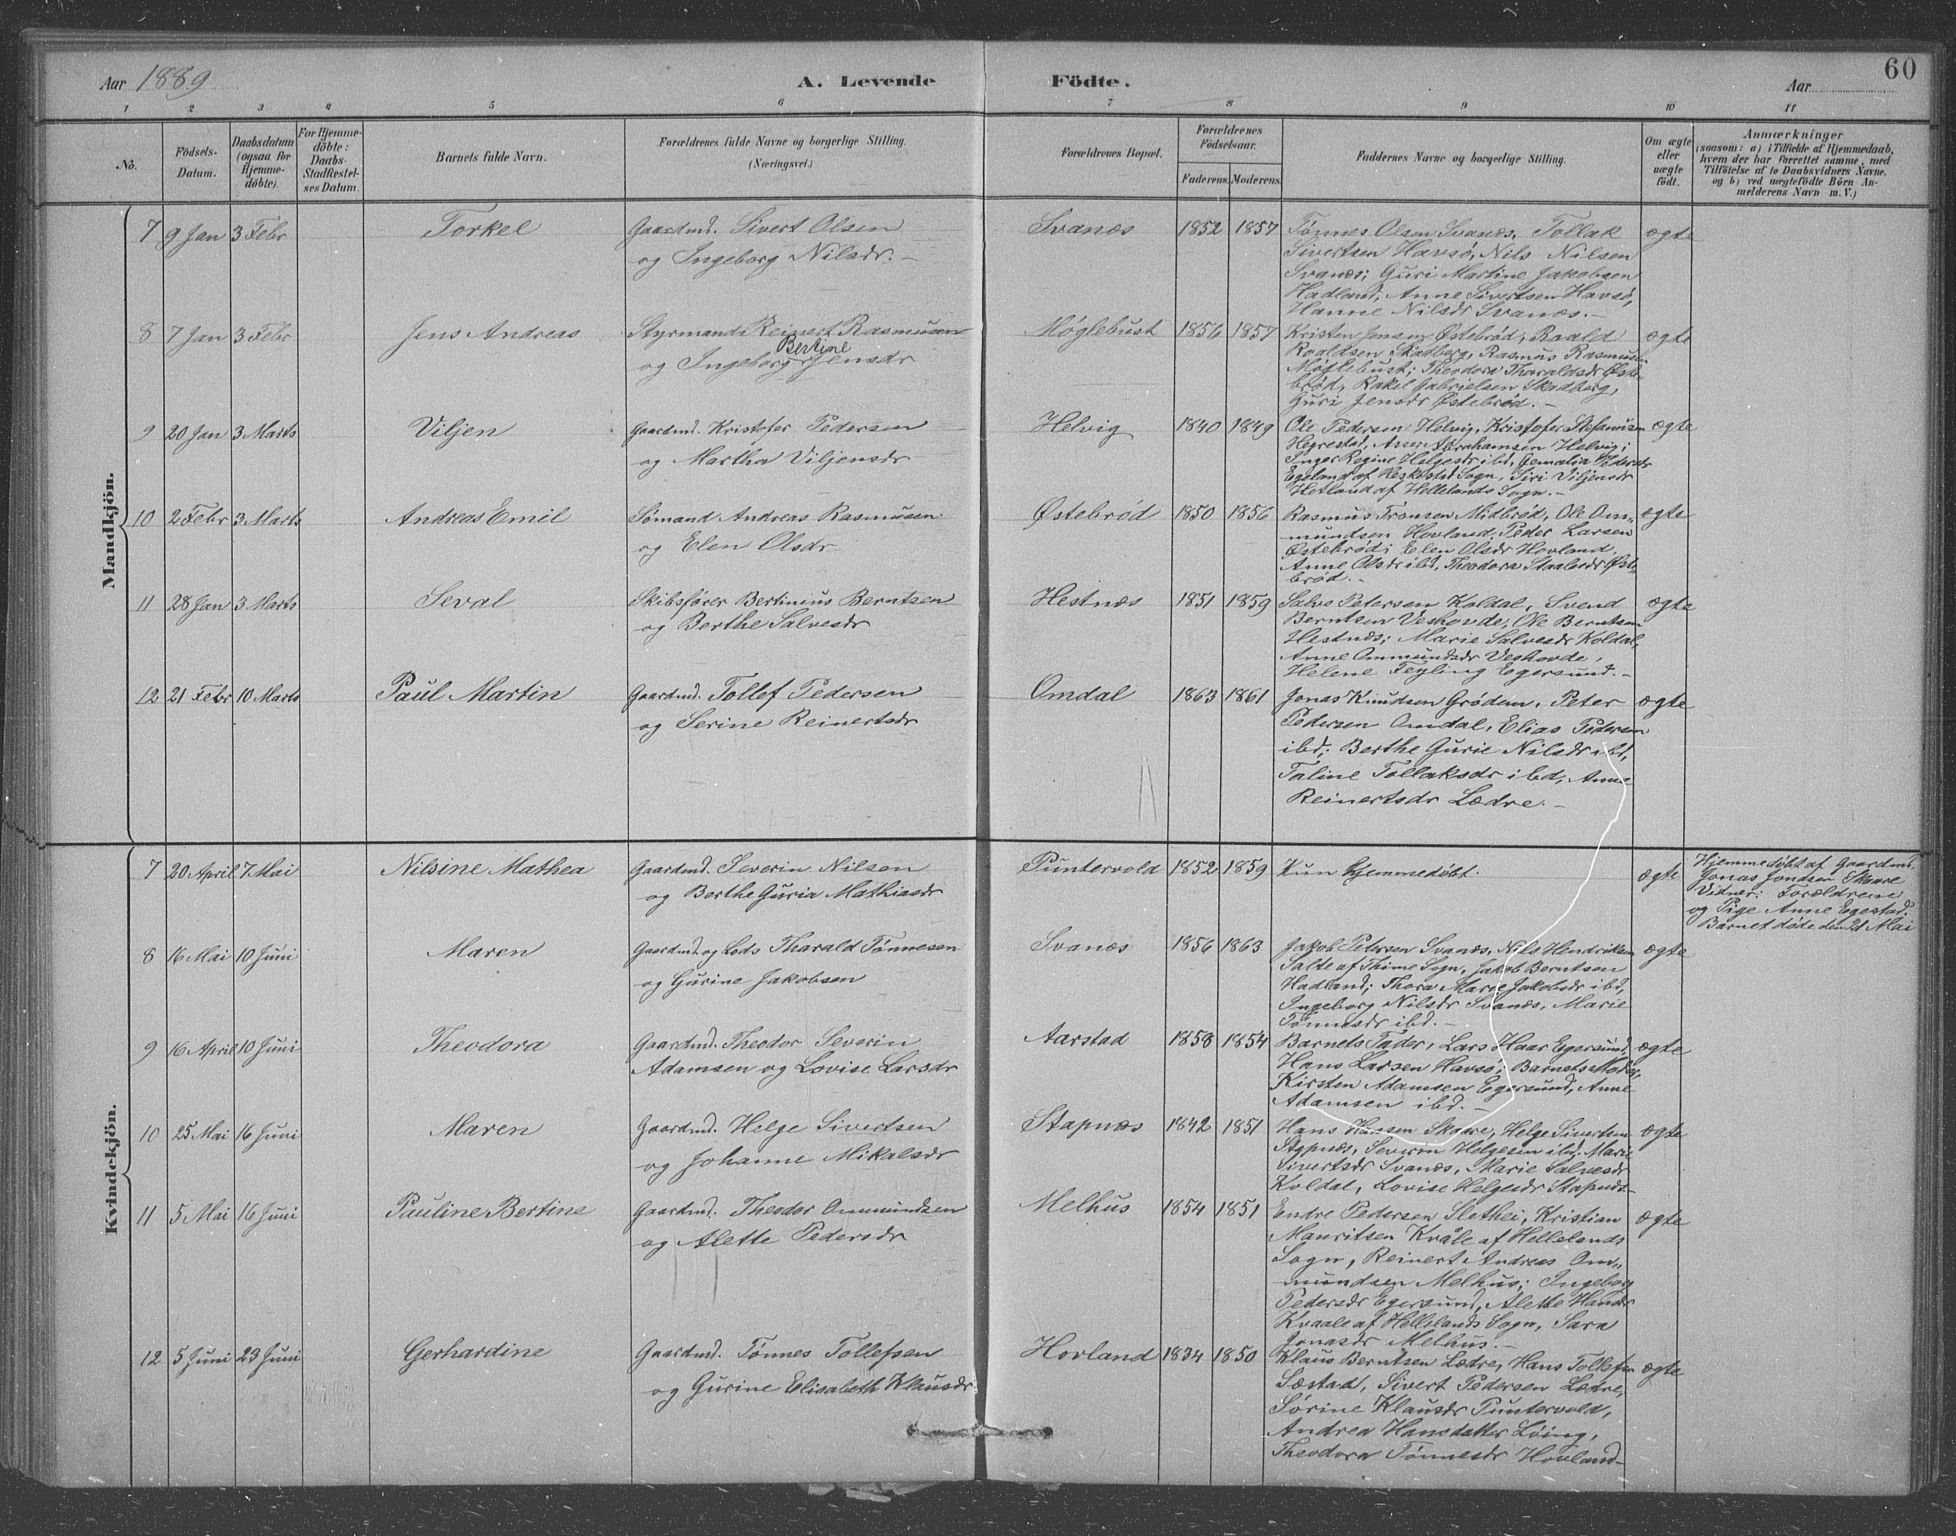 60
Aar 1889 A. Levende Födte. Aar
1 2 3 4 5 6 7 8 9 10 11
No.
Födsels-Datum.
Daabsdatum (ogsaa for Hjemme-döbte).
For Hjemme-döbte: Daabs-Stadfæstel-ses Datum.
Barnets fulde Navn.
Forældrenes fulde Navne og borgerlige Stilling. (Næringsvei.)
Forældrenes Bopæl.
Forældrenes Födselsaar.
Faderens. Moderens.
Faddernes Navne og borgerlige Stilling.
Om ægte eller uægte födt.
Anmærkninger
(saasom: a) i Tilfælde af Hjemmedaab, hvem der har forrettet samme, med Tilföielse af to Daabsvidners Navne, og b) ved uægtefödte Börn An-melderens Navn m. V.)
Mandkjön.
7 9 Jan 3 Febr Torkel Gaardmd. Sivert Olsen Svanæs 1852 1857 Tønnes Olsen Svanæs, Tollak ægte
og Ingeborg Nilsdr. - Sivertsen Havsø, Nils Nilsen
Svanæs; Guri Martine Jakobsen
Hadland, Anne Sivertsen Havsø,
Hanne Nilsdr Svanæs. -
8 7 Jan 3 Febr Jens Andreas Styrmand Reinert Rasmusen Møglebust 1856 1857 Kristen Jensen Østebrød, Roald ægte
og Ingeborg Bertine Jensdr Roaldsen Skadberg, Rasmus Rasmusen
Møglebust; Theodora Tharaldsdr Øste-
brød, Rakel Gabrielsen Skadberg,
Guri Jensdr Østebrød. -
9 20 Jan 3 Marts Viljen Gaardmd. Kristofer Pedersen Helvig 1840 1849 Ole Pedersen Helvig, Kristofer Stefanusen ægte
og Martha Viljensdr Hegrestad, Asser Abrahamsen Helvig;
Inger Regine Helgesdr ibd, Pedersdr
Egeland af Heskestad Sogn, Siri Viljensdr
Hetland af Hellelands Sogn. -
10 2 Febr 3 Marts Andreas Emil Sømand Andreas Rasmusen Østebrød 1850 1856 Rasmus Tronsen Midbrød, Ole Om-
ægte
og Elen Olsdr. mundsen Hovland, Peder Larsen
Østebrød; Elen Olsdr Hovland,
Anne Olsdr ibd, Theodora Staalesdr Øst-
brød. -
11 28 Jan 3 Marts Seval Skibsfører Bertinius Berntsen Hestnæs 1851 1859 Salve Petersen Koldal, Svend ægte
og Berthe Salvesdr Berntsen Veshovde, Ole Berntsen
Hestnæs; Marie Salvesdr Koldal,
Anne Ommundsdr Veshovde,
Helene Feyling Egersund. -
12 21 Febr 10 Marts Paul Martin Gaardmd. Tollef Pedersen Omdal 1863 1861 Jonas Knudsen Grødem, Peter ægte
og Serine Reinertsdr Pedersen Omdal, Elias Pedersen
ibd; Berthe Gurie Nilsdr ibd,
Taline Tollaksdr ibd, Anne
Reinertsdr Lædre. -
Kvindekjön.
7 20 April 7 Mai Nilsine Mathea Gaardmd. Severin Nilsen Puntervold 1852 1859 Kun hjemmedøbt. ægte Hjemmedøbt af Gaardmd.
og Berthe Guria Mathiasdr Jonas Jondsen Skaare
Vidner: Forældrene
og Pige Anne Egestad.
Barnet døde den 21 Mai
8 16 Mai 10 Juni Maren Gaardmd. og Lods Tharald Tønnesen Svanæs 1856 1863 Jakob Petersen Svanæs, Nils Hendriksen ægte
og Gurine Jakobsen Salte af Thime Sogn, Jakob Berntsen
Hadland; Thora Marie Jakobsdr ibd,
Ingeborg Nilsdr Svanæs, Marie
Tønnesdr ibd. -
9 16 April 10 Juni Theodora Gaardmd. Theodor Severin Aarstad 1858 1854 Barnets Fader, Lars Haar Egersund, ægte
Adamsen og Lovise Larsdr Hans Larsen Havsø; Barnets Moder,
Kirsten Adamsen Egersund, Anne
Adamsen ibd. -
10 25 Mai 16 Juni Maren Gaardmd. Helge Sivertsen Stapnæs 1842 1851 Hans Hansen Skaare, Helge Sivertsen ægte
og Johanne Mikalsdr Stapnæs, Severin Helgesen ibd; Marie
Sivertsdr Svanæs, Marie Salvesdr
Koldal, Lovise Helgesdr Stapnæs.
11 5 Mai 16 Juni Pauline Bertine Gaardmd. Theodor Ommundsen Melhus 1854 1851 Endre Pedersen Slethei, Kristian ægte
og Alette Pedersdr Mauritsen Kvåle af Hellelands
Sogn, Reinert Andreas Om-
mundsen Melhus; Ingeborg
Pedersdr Egersund, Alette Hansdr
Kvaale af Hellelands Sogn, Sara
Jonasdr Melhus. -
12 5 Juni 23 Juni Gerhardine Gaardmd. Tønnes Tollefsen Hovland 1834 1850 Klaus Berntsen Lædre, Hans Tollefsen ægte
og Gurine Elisabeth Klausdr Sæstad, Sivert Pedersen Lædre,
Sørine Klausdr Puntervold,
Andrea Hansdatter Løing,
Theodora Tønnesdr Hovland.